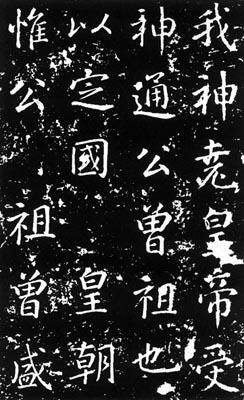 我神尭皇帝受
神通公曽祖也
以定國 皇朝
惟公 祖曽盛